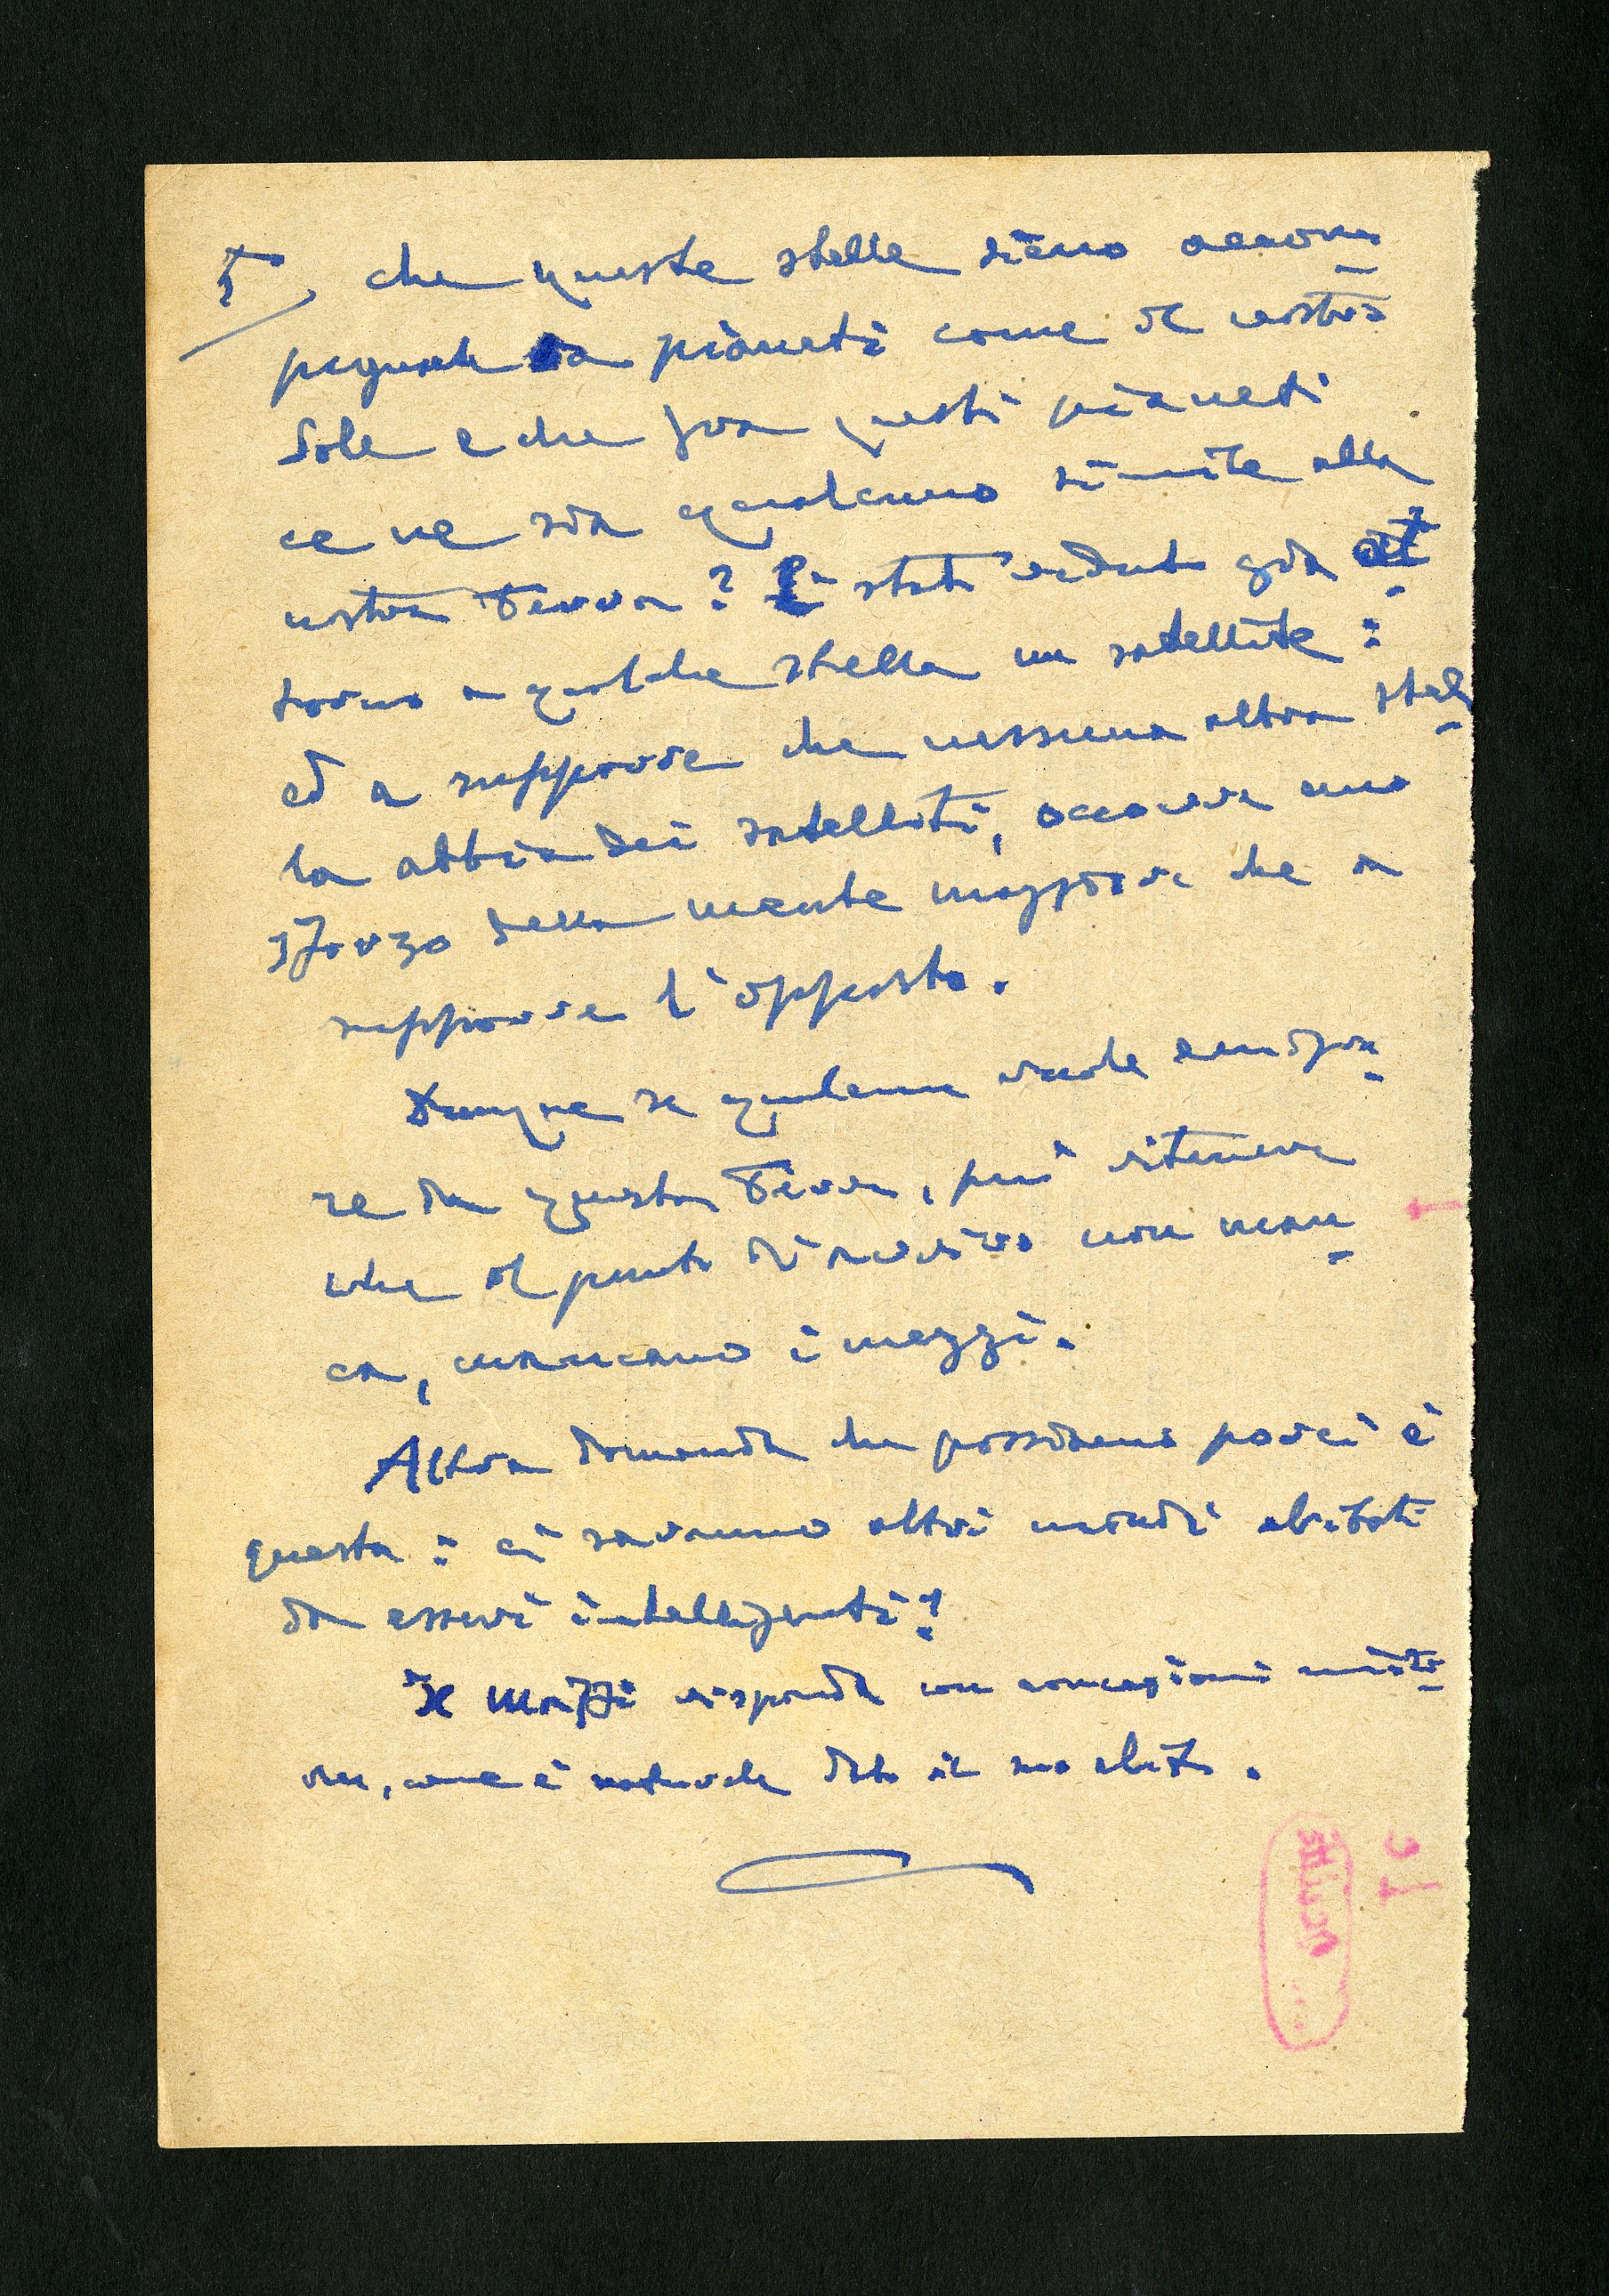 5, che queste stelle siano accom
pagnate da pianeti come il nostro
Sole e che fra questi pianeti
ce ne sia qualcuno simile alla
nostra Terra? È stato veduto già at
torno a qualche stella un satellite:
ed a supporre che nessuna altra stel
la abbia dei satelliti, occorre uno
sforzo della mente maggiore che a
supporre l'opposto.
Dunque se qualcuno vuole emigra
re da questa Terra, può ritenere
che il punto d'arrivo non man
ca, mancano i mezzi.
Altra domanda che possiamo porci è
questa: ci saranno altri mondi abitati
da esseri intelligenti?
Il Maffi risponda con concezioni misti
che, come è naturale dato il suo abito.